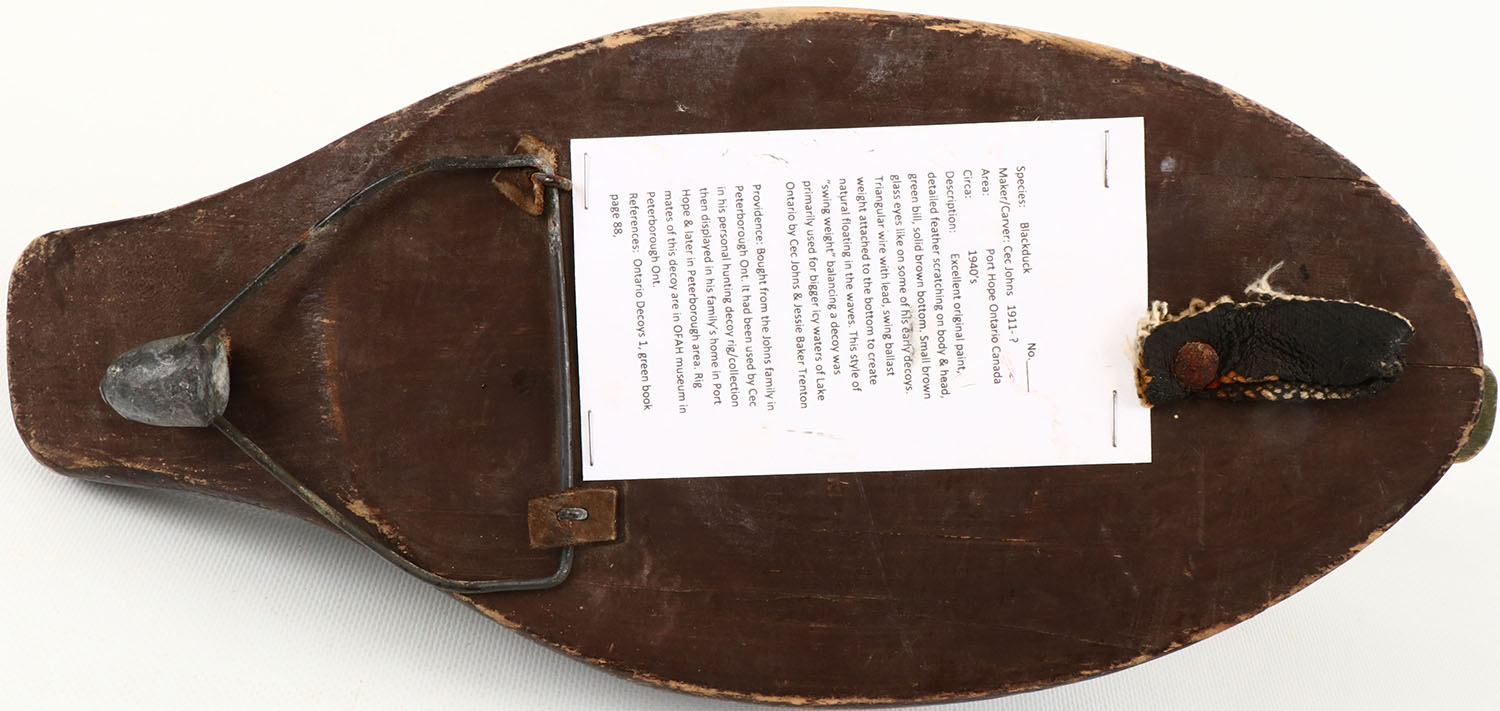 No.____
Species: Blackduck
Maker/Carver: Cec Johns 1911- ?
Area: Port Hope Ontario Canada
Circa: 1940's
Description: Excellent original paint,
detailed feather scratching on body & head,
green bill, solid brown bottom. Small brown
glass eyes like on some of his early decoys.
Triangular wire with lead, swing ballast
weight attached to the bottom to create
natural floating in the waves. This style of
"swing weight" balancing a decoy was
primarily used for bigger icy waters of Lake
Ontario by Cec Johns & Jessie Baker Trenton
Providence: Bought from the Johns family in
Peterborough Ont. It had been used by Cec
in his personal hunting decoy rig/collection
then displayed in his family's home in Port
Hope & later in Peterborough area. Rig
mates of this decoy are in OFAH museum in
Peterborough Ont.
References: Ontario Decoys 1, green book
page 88,